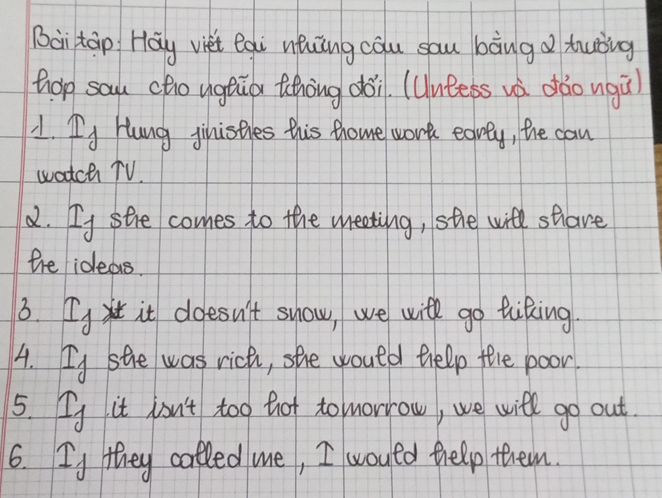 Bài tập: Hãy viết lại những câu sau bằng 2 trường
hợp sau cho nghĩa không đổi. (Unless và đảo ngữ)
1. If Hung finishes his homework early, he can
watch TV.
2. If she comes to the meeting, she will share
the ideas.
3. If it doesn't snow, we will go hiking.
4. If she was rich, she would help the poor.
5. If it isn't too hot tomorrow, we will go out.
6. If they called me, I would help them.